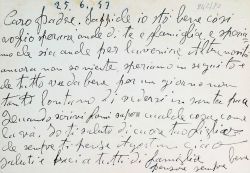 25.6.57
Caro Padre. Sappi che io sto bene così
voglio sperare anche di te e famiglia e speria
mo che sia anche per l'avvenire altre novità
ancora non so niente speriamo in seguito
di tutto vada bene per un giorno non
tanto lontano di vederci in santa pace
quando scrivi fammi sapere qualche cosa come
la va. Io ti saluto di cuore tuo figlio
che sempre ti pensa ciao
saluti e baci a tutti di famiglia
pensare sempre bene